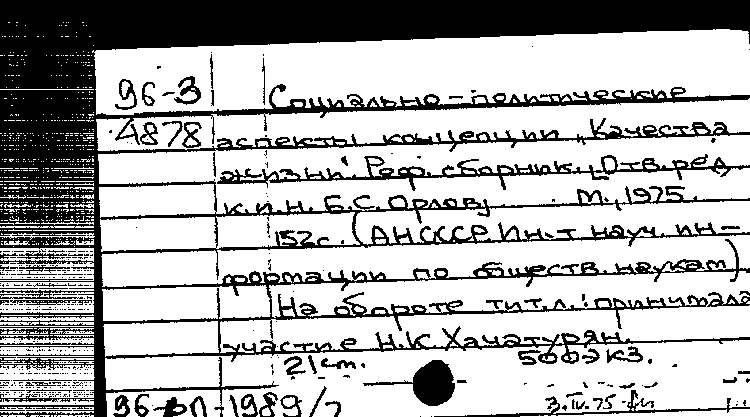 96-3
Социально-политические
4878 аспекты концепции „Качества
жизни". Реф. сборник. [Отв. ред.
к.и.н. Б.С. Орлов] М., 1975.
152с. (АН СССР. Ин-т науч. ин-
формации по обществ. наукам)
На обороте тит.л.: принимала
участие Н.К. Хачатурян.
21см. 500экз.
3.IV.75